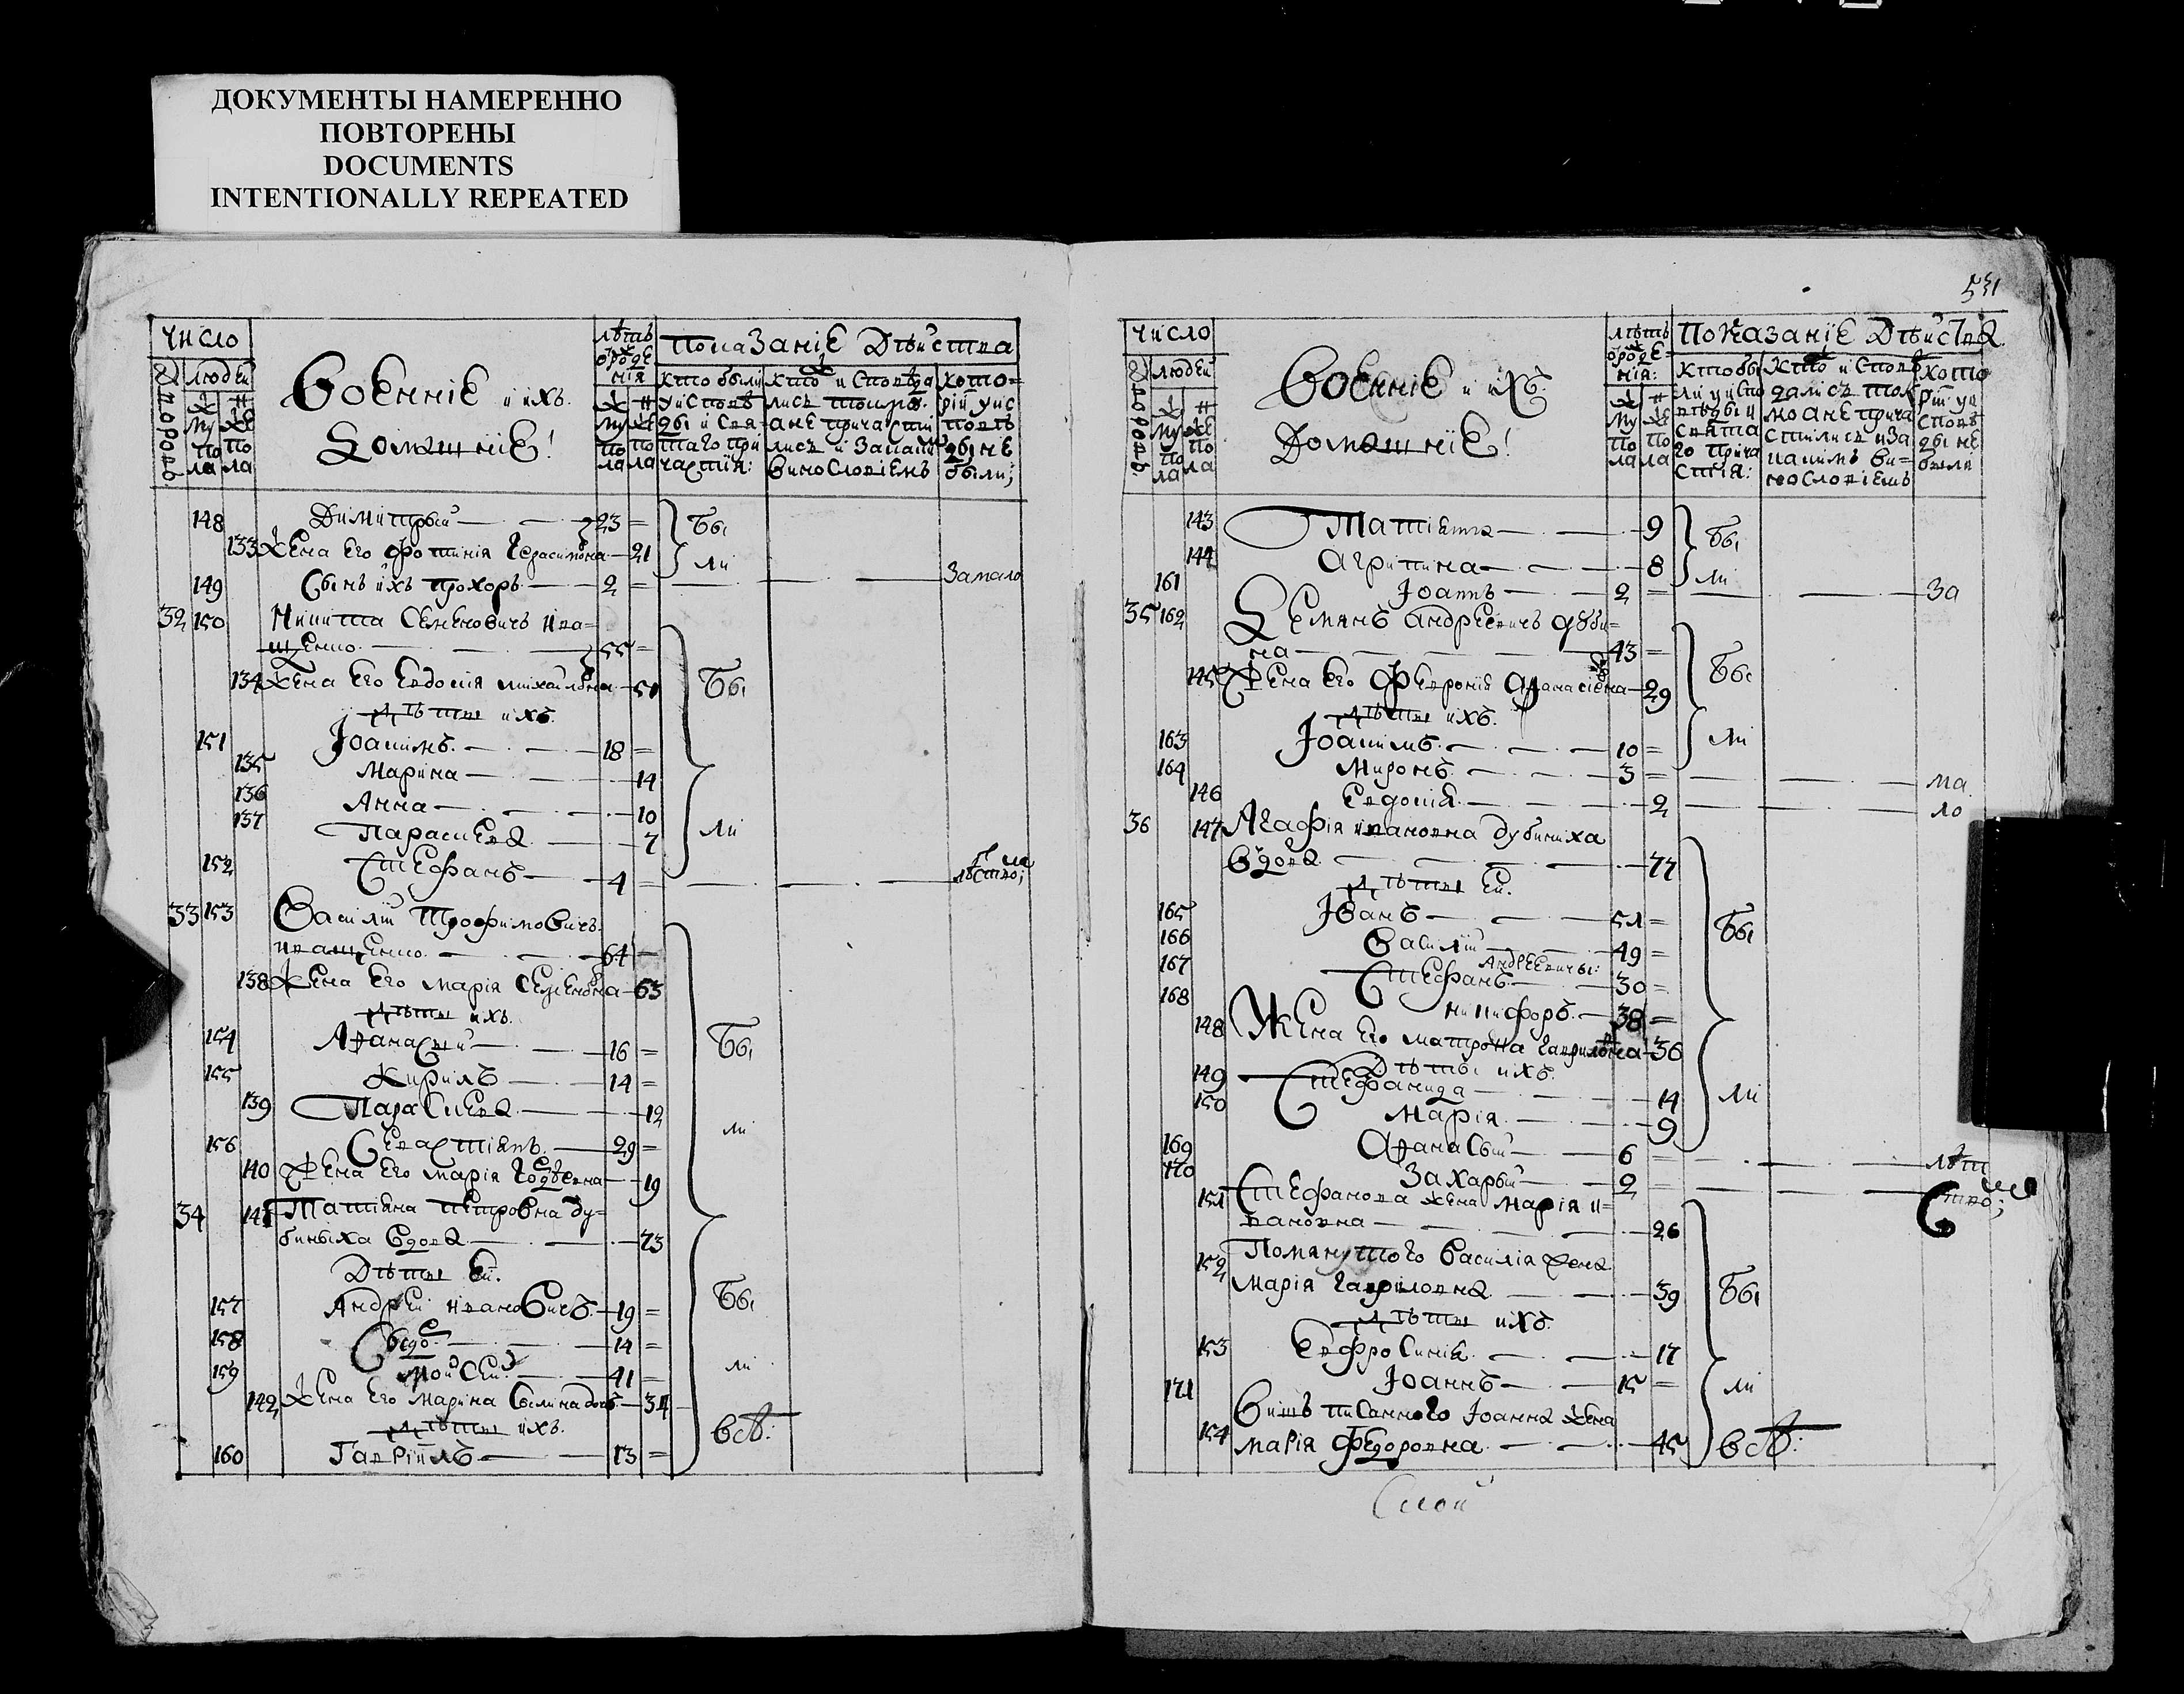 ДОКУМЕНТЫ НАМЕРЕННО
ПОВТОРЕНЫ
DOCUMENTS
INTENTIONALLY REPEATED
число
людей
дворовъ
муже
пола
пола
Военніе и ихъ
Домашніе!
лѣтъ
ѿ рожде
нія
Показаніе Дѣйства
кто были
у исповѣ
ди и свя
таго при
частія:
кто исповѣда
лись токмо
а не причасти
лись и за каким
винословіемъ
кото=
рій у ис
повѣ
ди не
были;
148 Димитрый 23 =
133 Жена его Фотинія Герасимовна 21
Бы
ли
149 Сынъ ихъ Прохоръ 2 = Замало
32 150 Никита Семеновичъ Ива=
щенко 55 =
134 Жена его Евдокія Михайловна 50
Дѣти ихъ
151 Іоакимъ 18 =
135 Марина 14
136 Анна 10
137 Параскева 7
Бы
ли
152 Стефанъ 4 = лѣтство;
33 153 Василій Трофимовичъ
Иващенко 64 =
138 Жена его Марія Семеновна 63
Дѣти ихъ
154 Афанасый 16 =
155 Кирилъ 14 =
139 Параскева 12
156 Севастіянъ 29 =
140 Жена его Марія Гордѣевна 19
Бы
ли
34 141 Татіяна Петровна Ду=
биныха Вдова 73
Дѣти ей
157 Андрей Ивановичъ 19 =
158 14 =
159 Мойсей 41 =
142 Жена его Марина 34
Дѣти ихъ
160 Гавріилъ 13 =
Бы
ли
всѣ:
531
число
людей
дворовъ
муже
пола
пола
Военніе и ихъ
Домашніе!
лѣтъ
ѿ рожде=
нія:
Показаніе Дѣйства
кто бы
ли у испо
вѣди и
свята
го прича
стія:
кто исповѣ
дались ток
мо а не прича
стились и за
какимъ ви=
нословіемъ
кото
рій у и
сповѣ
ди не
были
143 Татіяна 9
144 Агрипина 8
Бы
ли
161 Іоаннъ 2 = За
35 162 Демянъ Андреевичъ Дуби=
на 43 =
145 Жена его Февронія Афанасіевна 29
Дѣти ихъ
163 Іоакимъ 10 =
Бы
ли
164 Миронъ 3 = ма
146 Евдокія 2 ло
36 147 Агафія Ивановна Дубиниха
Вдова 77
Дѣти ей
165 Іванъ 51 =
166 Василій 49 =
Андреевичы:
167 Стефанъ 30 =
168 Никифоръ 38 =
148 Жена его Матрона Гавриловна 36
Дѣти ихъ
149 Стефанида 14
150 Марія 9
Бы
ли
169 Афанасый 6 = лѣт
170 Захарый 2 = ство;
151 Стефанова жена Марія И=
вановна 26
152 Помянутого Василія жена
Марія Гавриловна 39
Дѣти ихъ
153 Евфросинія 17
171 Іоаннъ 15 =
Вишъ писанного Іоанна жена
154 Марія Федоровна 45
Бы
ли
всѣ: